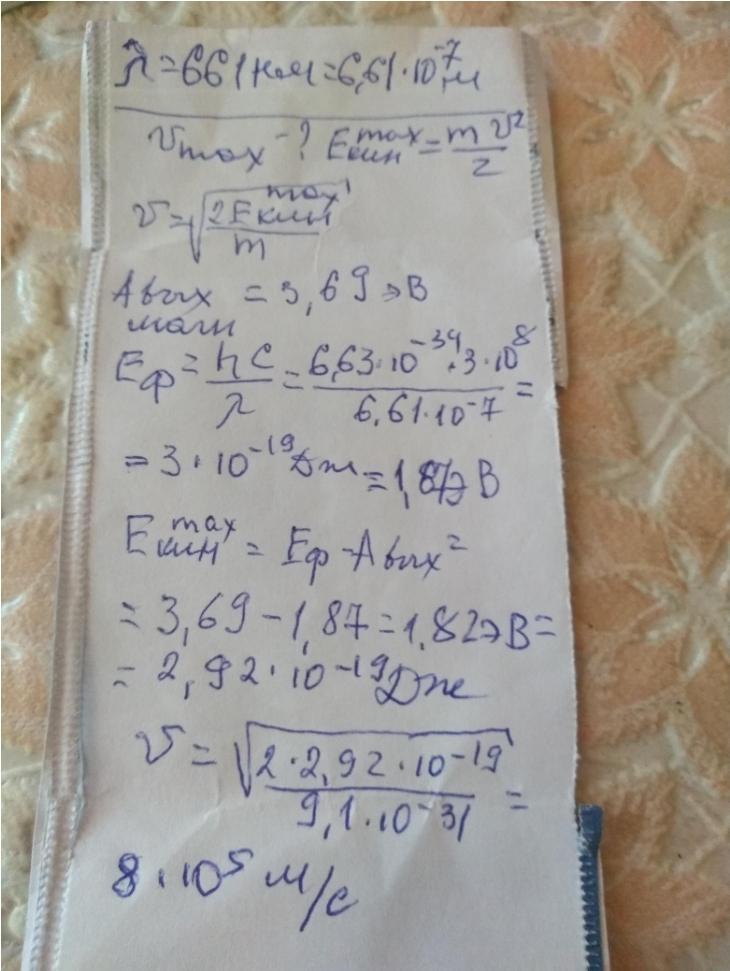 λ = 661 нм = 6,61·10⁻⁷ м
υmax -? Eкин^max = mυ²/2
υ = √(2Eкин^max/m)
Aвых = 3,69 эВ
магн
Eф = hc/λ = 6,63·10⁻³⁴·3·10⁸/6,61·10⁻⁷ =
= 3·10⁻¹⁹ Дж = 1,87эВ
Eкин^max = Eф - Aвых =
= 3,69 - 1,87 = 1,82эВ =
= 2,92·10⁻¹⁹ Дж
υ = √(2·2,92·10⁻¹⁹/9,1·10⁻³¹) =
8·10⁵ м/с